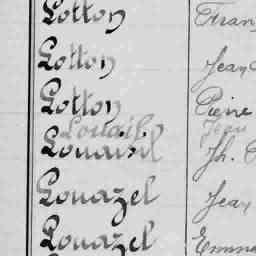 Lotton Fran
Lotton Jean
Lotton Pierre
Louail Jean
Louaisil Jh.
Louazel Jean
Louazel Emma